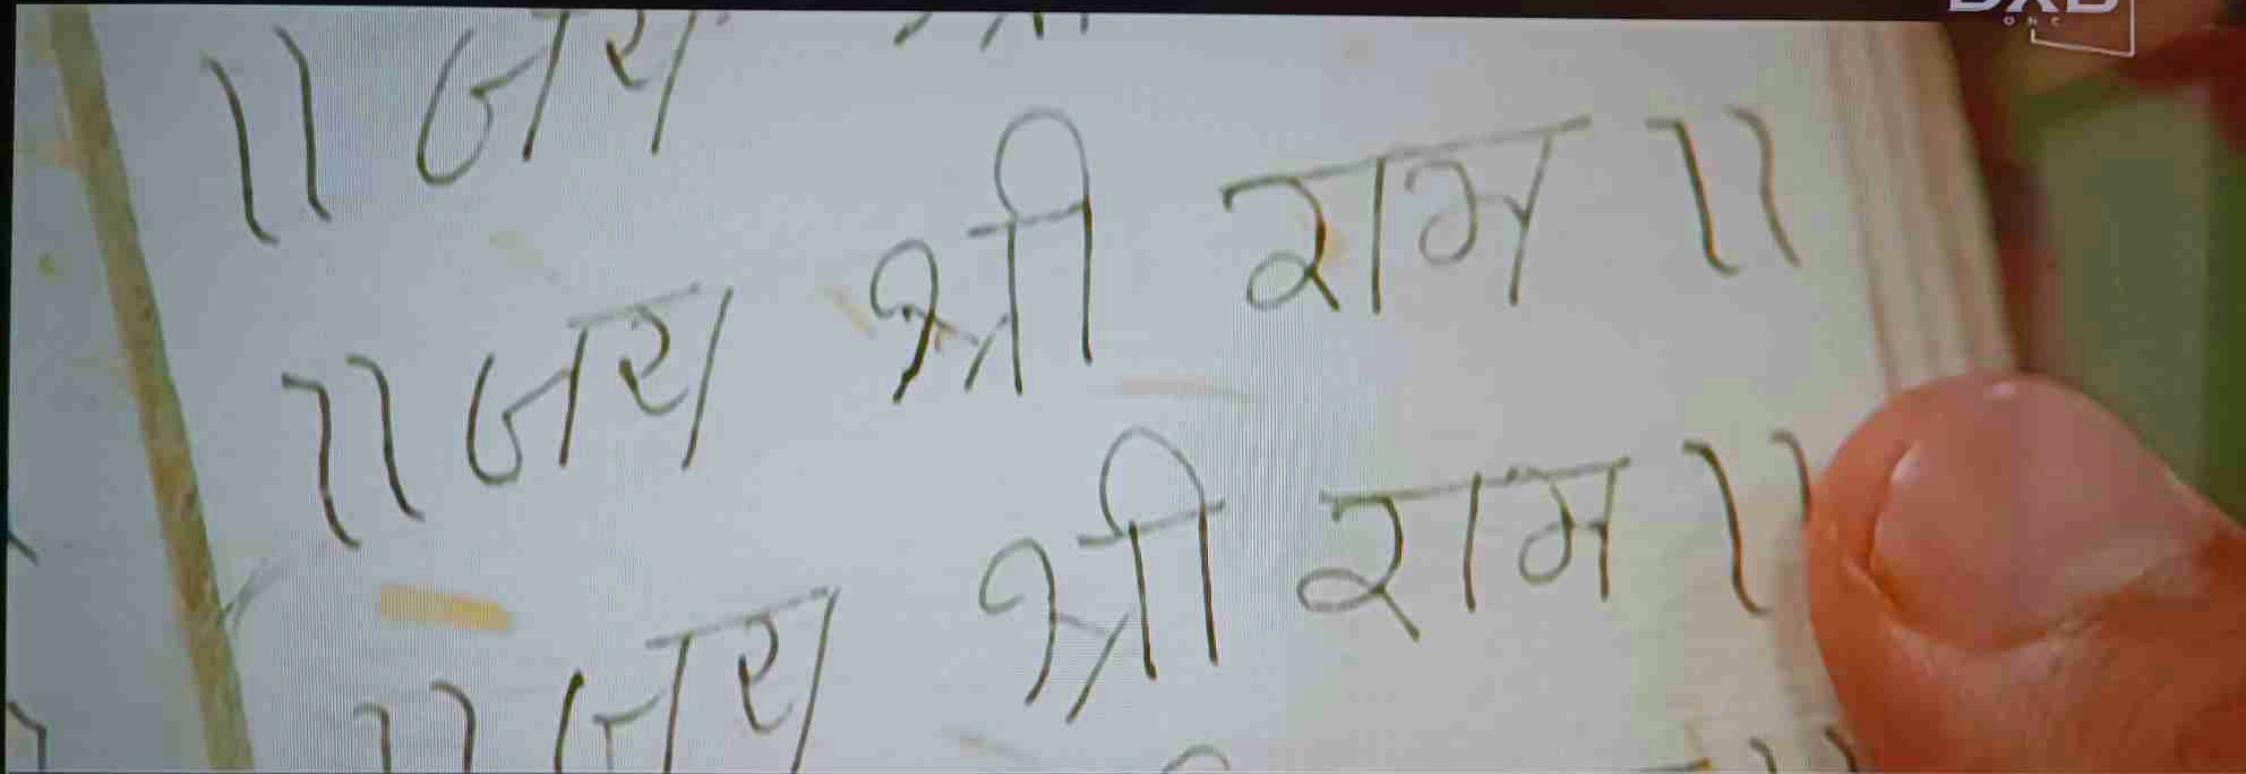 ॥ जय
॥ जय श्री राम ॥
॥ जय श्री राम ॥
ONE